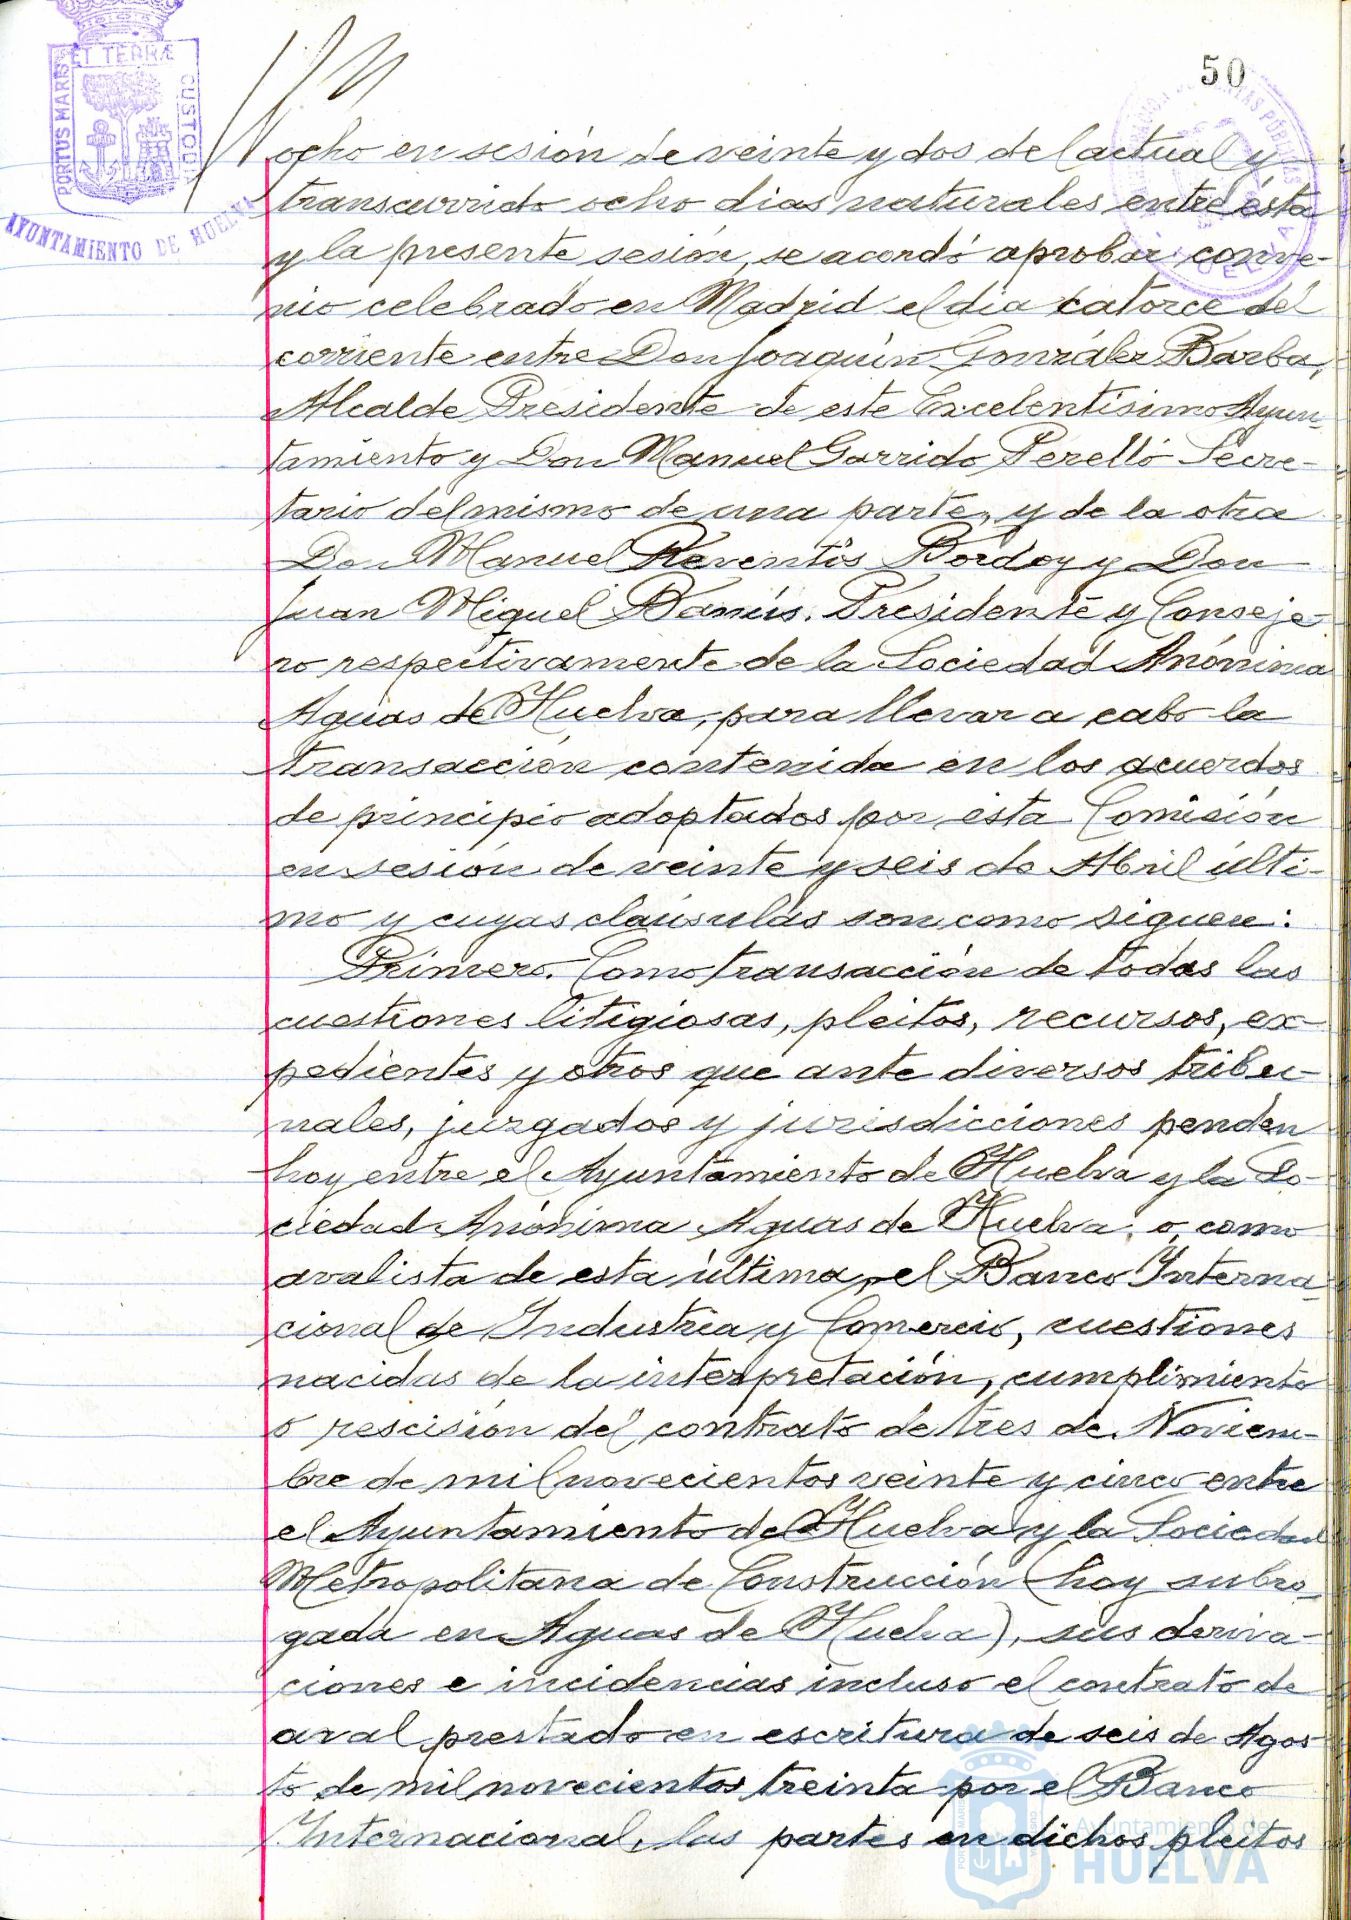 50
PORTUS MARIS ET TERRÆ CUSTODIA
AYUNTAMIENTO DE HUELVA
HUELVA
ocho en sesión de veinte y dos del actual y
transcurrido ocho dias naturales entre ésta
y la presente sesión, se acordó aprobar conve-
nio celebrado en Madrid el dia catorce del
corriente entre Don Joaquín González Barba,
Alcalde Presidente de este Excelentísimo Ayun-
tamiento y Don Manuel Garrido Perelló Secre-
tario del mismo de una parte, y de la otra
Don Manuel Reventós Bordoy y Don
Juan Miguel Banús. Presidente y Conseje-
ro respectivamente de la Sociedad Anónima
Aguas de Huelva, para llevar a cabo la
transacción contenida en los acuerdos
de principio adoptados por esta Comisión
en sesión de veinte y seis de Abril últi-
mo y cuyas claúsulas son como siguen:
Primero. Como transacción de todas las
cuestiones litigiosas, pleitos, recursos, ex-
pedientes y otros que ante diversos tribu-
nales, juzgados y jurisdicciones penden
hoy entre el Ayuntamiento de Huelva y la So-
ciedad Anónima Aguas de Huelva, o, como
avalista de esta última, el Banco Interna-
cional de Industria y Comercio, cuestiones
nacidas de la interpretación, cumplimiento
o rescisión del contrato de tres de Noviem-
bre de mil novecientos veinte y cinco entre
el Ayuntamiento de Huelva y la Sociedad
Metropolitana de Construcción (hoy subro-
gada en Aguas de Huelva), sus deriva-
ciones e incidencias incluso el contrato de
aval prestado en escritura de seis de Agos-
to de mil novecientos treinta por el Banco
Internacional, las partes en dichos pleitos
Ayuntamiento de
HUELVA